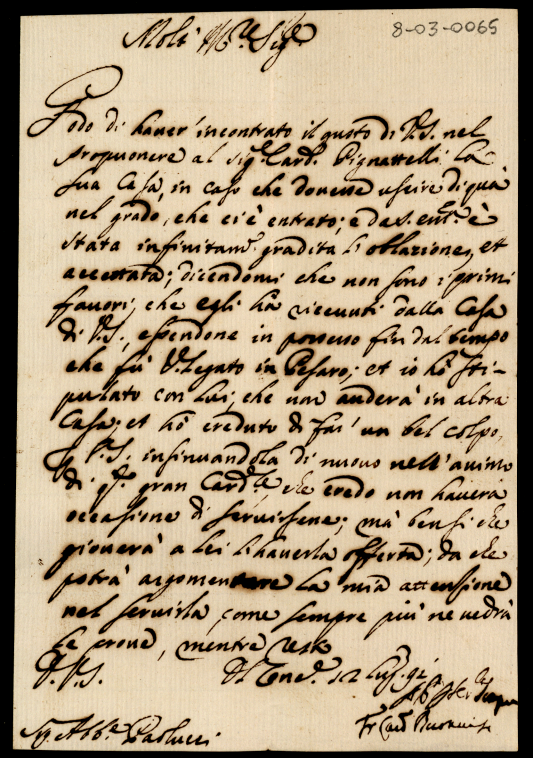 8-03-0065
Molt' Ill.re Sig.r
Godo di haver' incontrato il gusto di V.S. nel
propuonere al Sig.r Card.l Pignattelli la
sua Casa, in caso che douesse uscire di quà
nel grado, che ci è entrato; e da S. em.za è
stata infinitam.te gradita l'oblazione, et
accettata; dicendomi che non sono i primi
fauori, che egli hà riceuuti dalla Casa
di V.S., essendone in possesso fin dal tempo
che fù V.Legato in Pesaro; et io hò sti-
pulato con lui, che non anderà in altra
Casa; et hò creduto di far' un bel colpo,
p V.S. insinuandola di nuouo nell'animo
di q.sto gran Card.le che credo non hauerà
occasione di seruirsene; mà bensi che
giouerà a lei l'hauerla offerta; da che
potrà argomentare la mia attenzione
nel seruirla, come sempre più ne uedrà
le proue, mentre resto
D. V.S. Di Con.e 12 lug. 91
Fr. Card.
Sig. Abb.e Paolucci